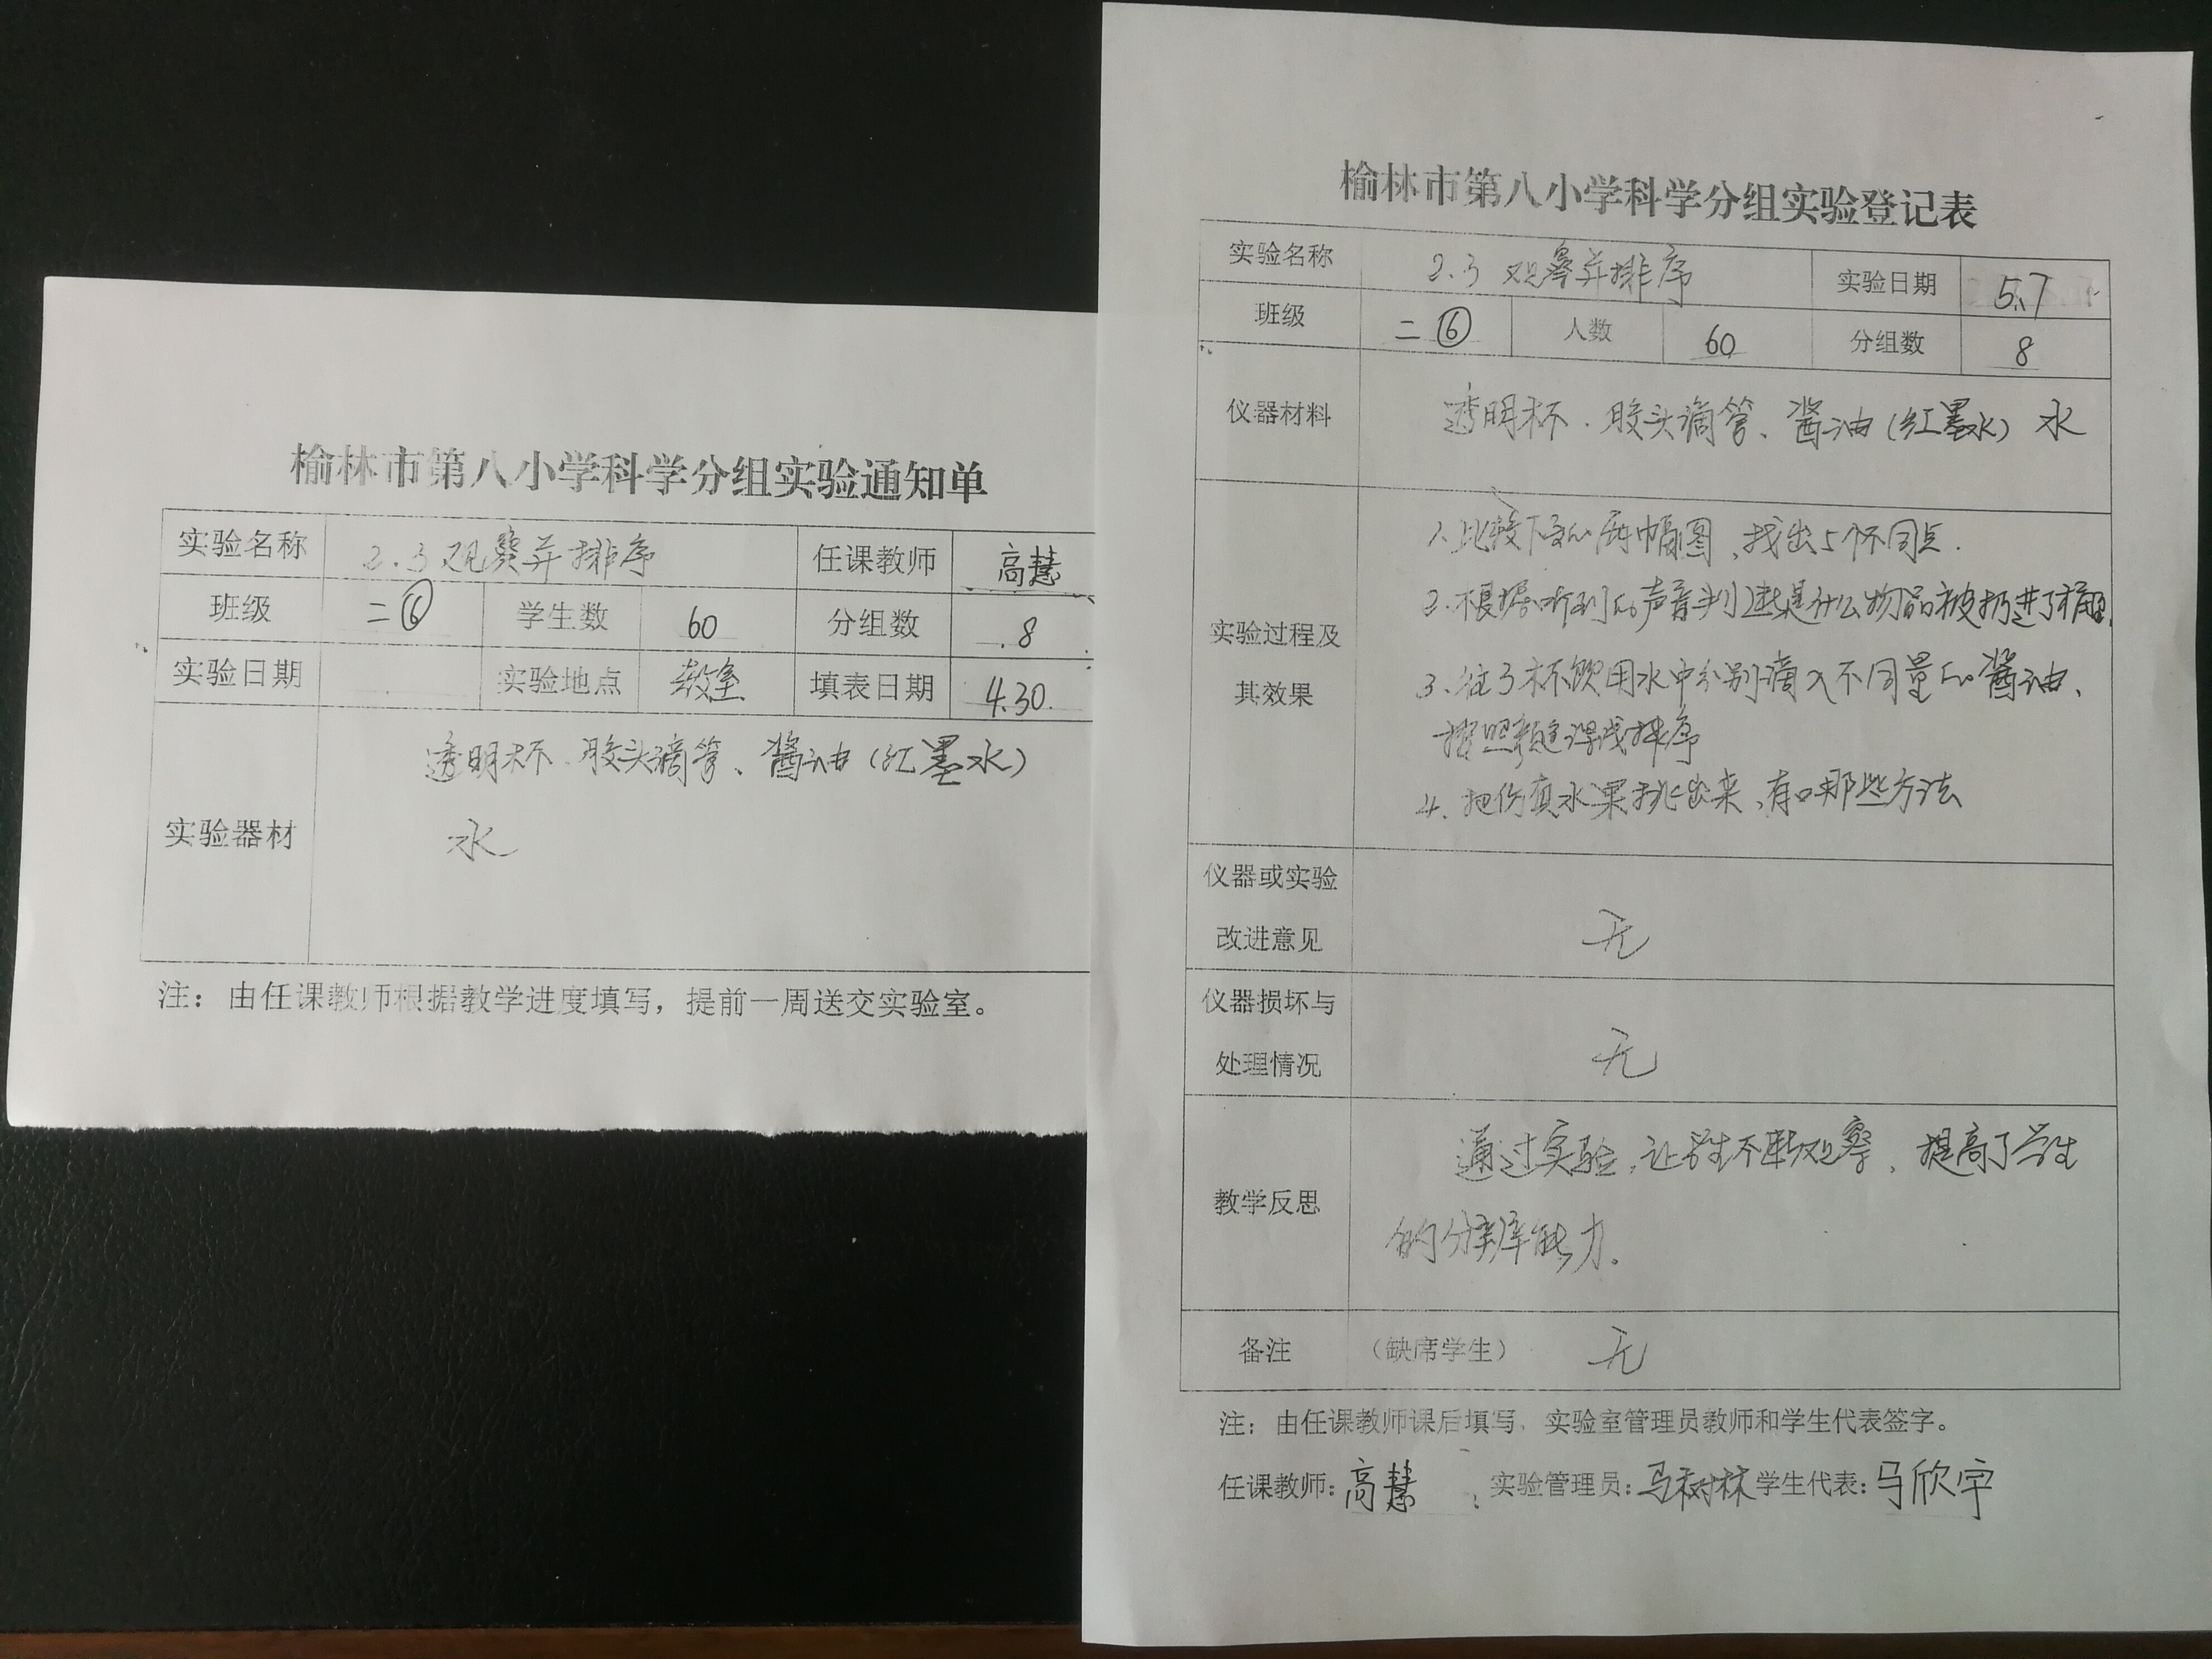 榆林市第八小学科学分组实验通知单
实验名称 2.3 观察并排序 任课教师 高慧
班级 二⑥ 学生数 60 分组数 8
实验日期 实验地点 教室 填表日期 4.30.
透明杯、胶头滴管、酱油(红墨水)
实验器材
水
注：由任课教师根据教学进度填写，提前一周送交实验室。
榆林市第八小学科学分组实验登记表
实验名称 2.3 观察并排序 实验日期 5.7
班级 二⑥ 人数 60 分组数 8
仪器材料 透明杯、胶头滴管、酱油(红墨水) 水
1.比较下面的两幅图，找出5个不同点.
2.根据听到的声音判断是什么物品被扔进了桶里
实验过程及
3.往3杯饮用水中分别滴入不同量的酱油、
其效果
按照颜色深浅排序
4.把仿真水果挑出来，有哪些方法
仪器或实验
改进意见 无
仪器损坏与
处理情况 无
通过实验，让学生不断观察，提高了学生
教学反思
的分辨能力.
备注 （缺席学生） 无
注：由任课教师课后填写，实验室管理员教师和学生代表签字。
任课教师：高慧 实验管理员：马树林 学生代表：马欣宇